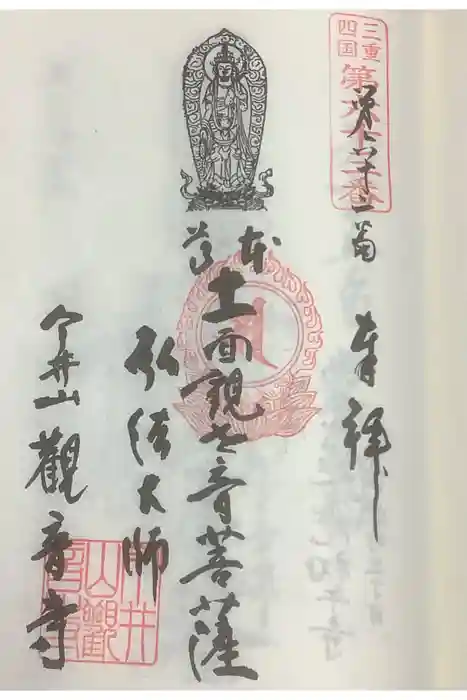 三重
四国
第六十二番
第六十二番
奉拝
本尊
十一面観世音菩薩
弘法大師
今井山 觀音寺
今井
山觀
音寺